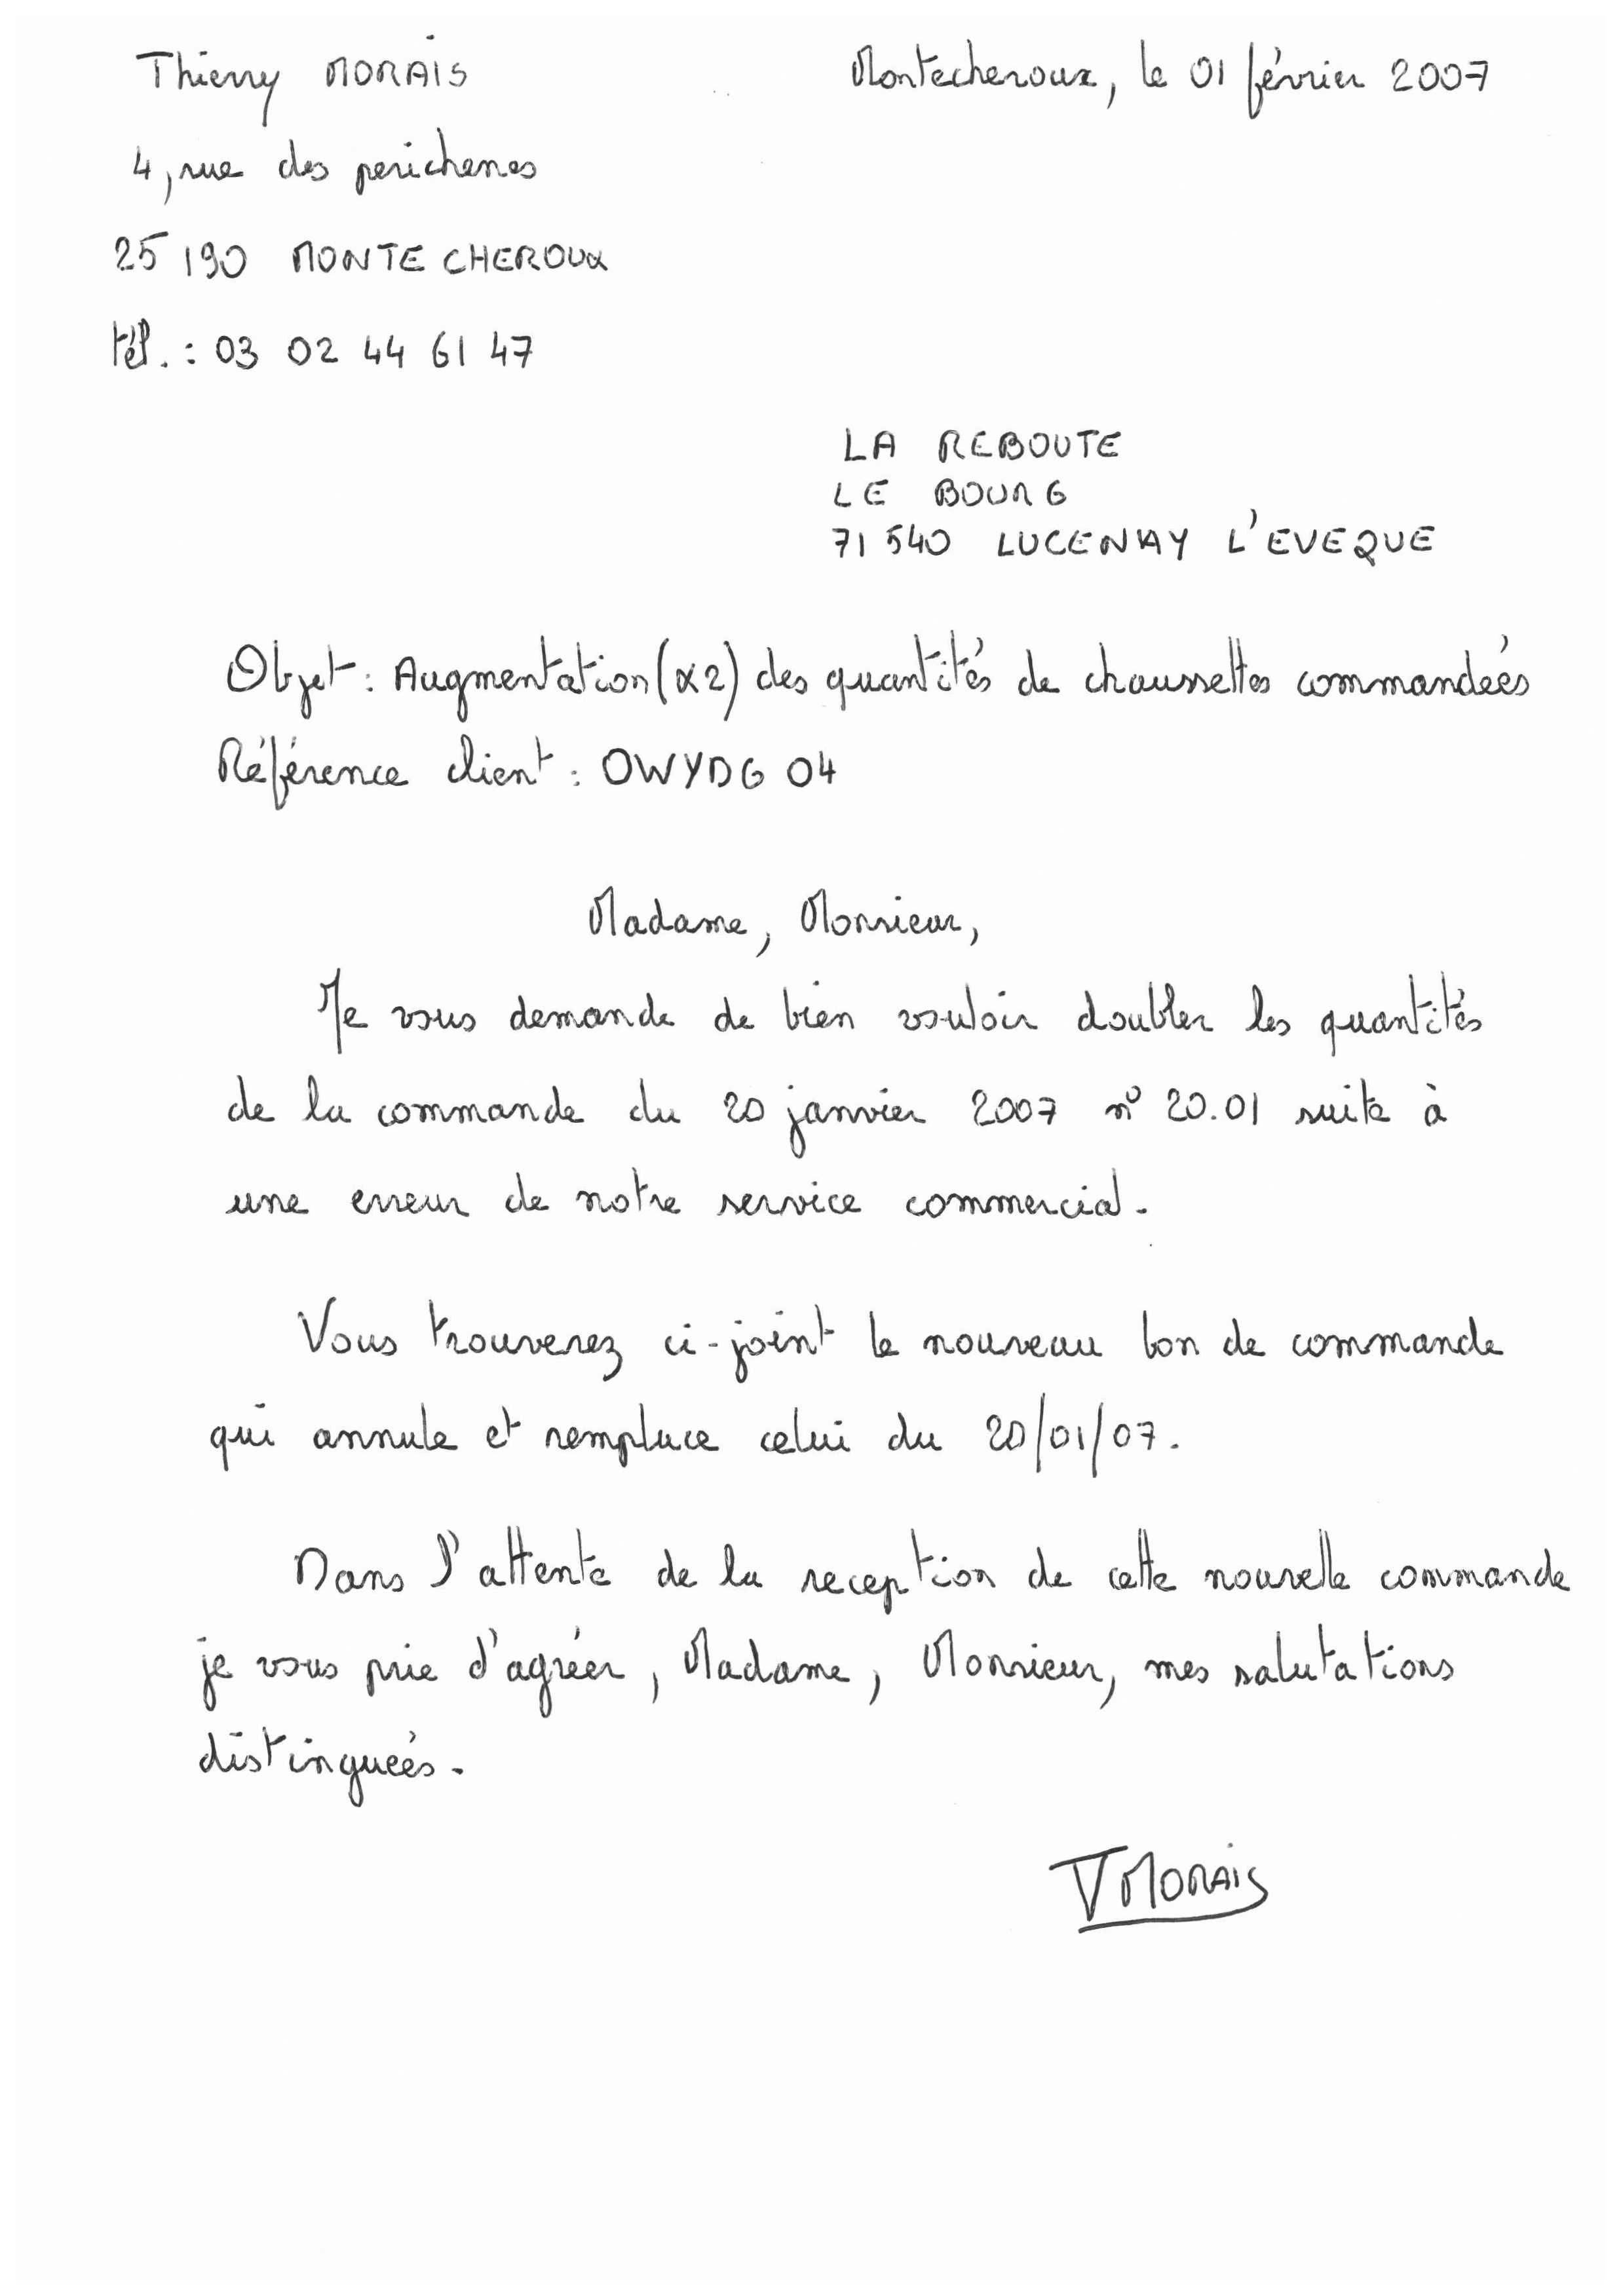 Thierry MORAIS
Montecheroux, le 01 février 2007
4, rue des perichenes
25 190 MONTECHEROUX
tél. : 03 02 44 61 47
LA REBOUTE
LE BOURG
71 540 LUCENAY L'EVEQUE
Objet : Augmentation (x2) des quantités de chaussettes commandées
Référence client : OWYDG 04
Madame, Monsieur,
Je vous demande de bien vouloir doubler les quantités
de la commande du 20 janvier 2007 n° 20.01 suite à
une erreur de notre service commercial.
Vous trouverez ci-joint le nouveau bon de commande
qui annule et remplace celui du 20/01/07.
Dans l'attente de la reception de cette nouvelle commande
je vous prie d'agréer, Madame, Monsieur, mes salutations
distinguées.
T MORAIS